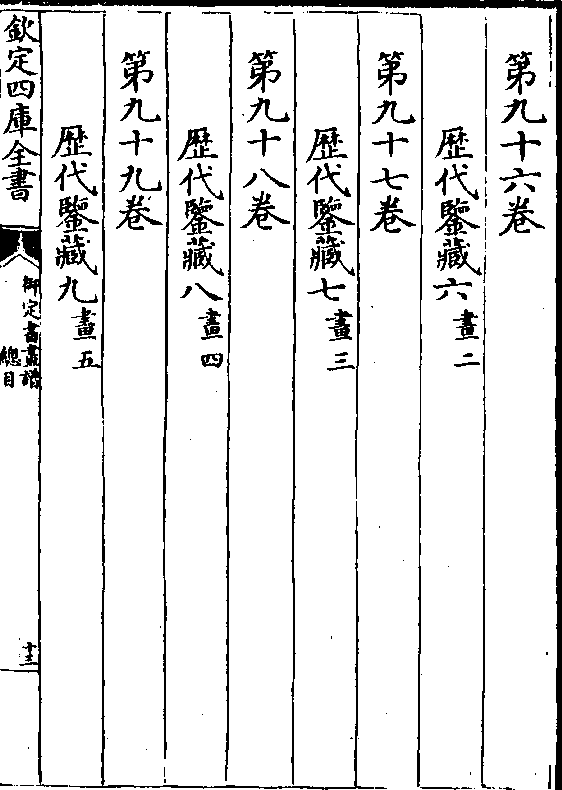 第九十六卷
歴代鑒藏六畫二
第九十七卷
歴代鑒藏七畫三
第九十八卷
歴代鑒藏八畫四
第九十九卷
歴代鑒藏九畫五
欽定四庫全書
御定書畫譜
總目
十三